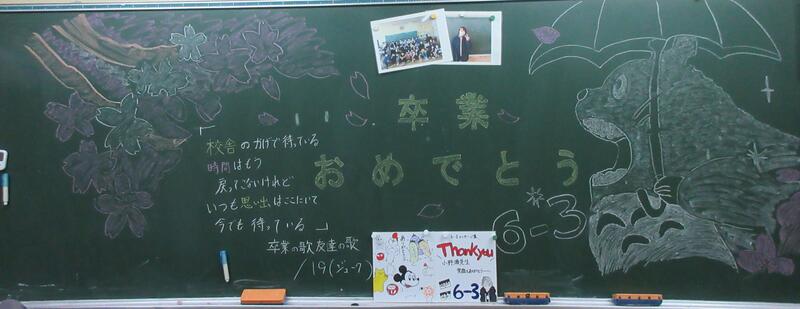 「
校舎のかげで待っている
時間はもう
戻ってこないけれど
いつも思い出はここにいて
今でも待っている」
卒業の歌友達の歌
/19(ジューク)
卒業
おめでとう
6-3
Thank you
6-3